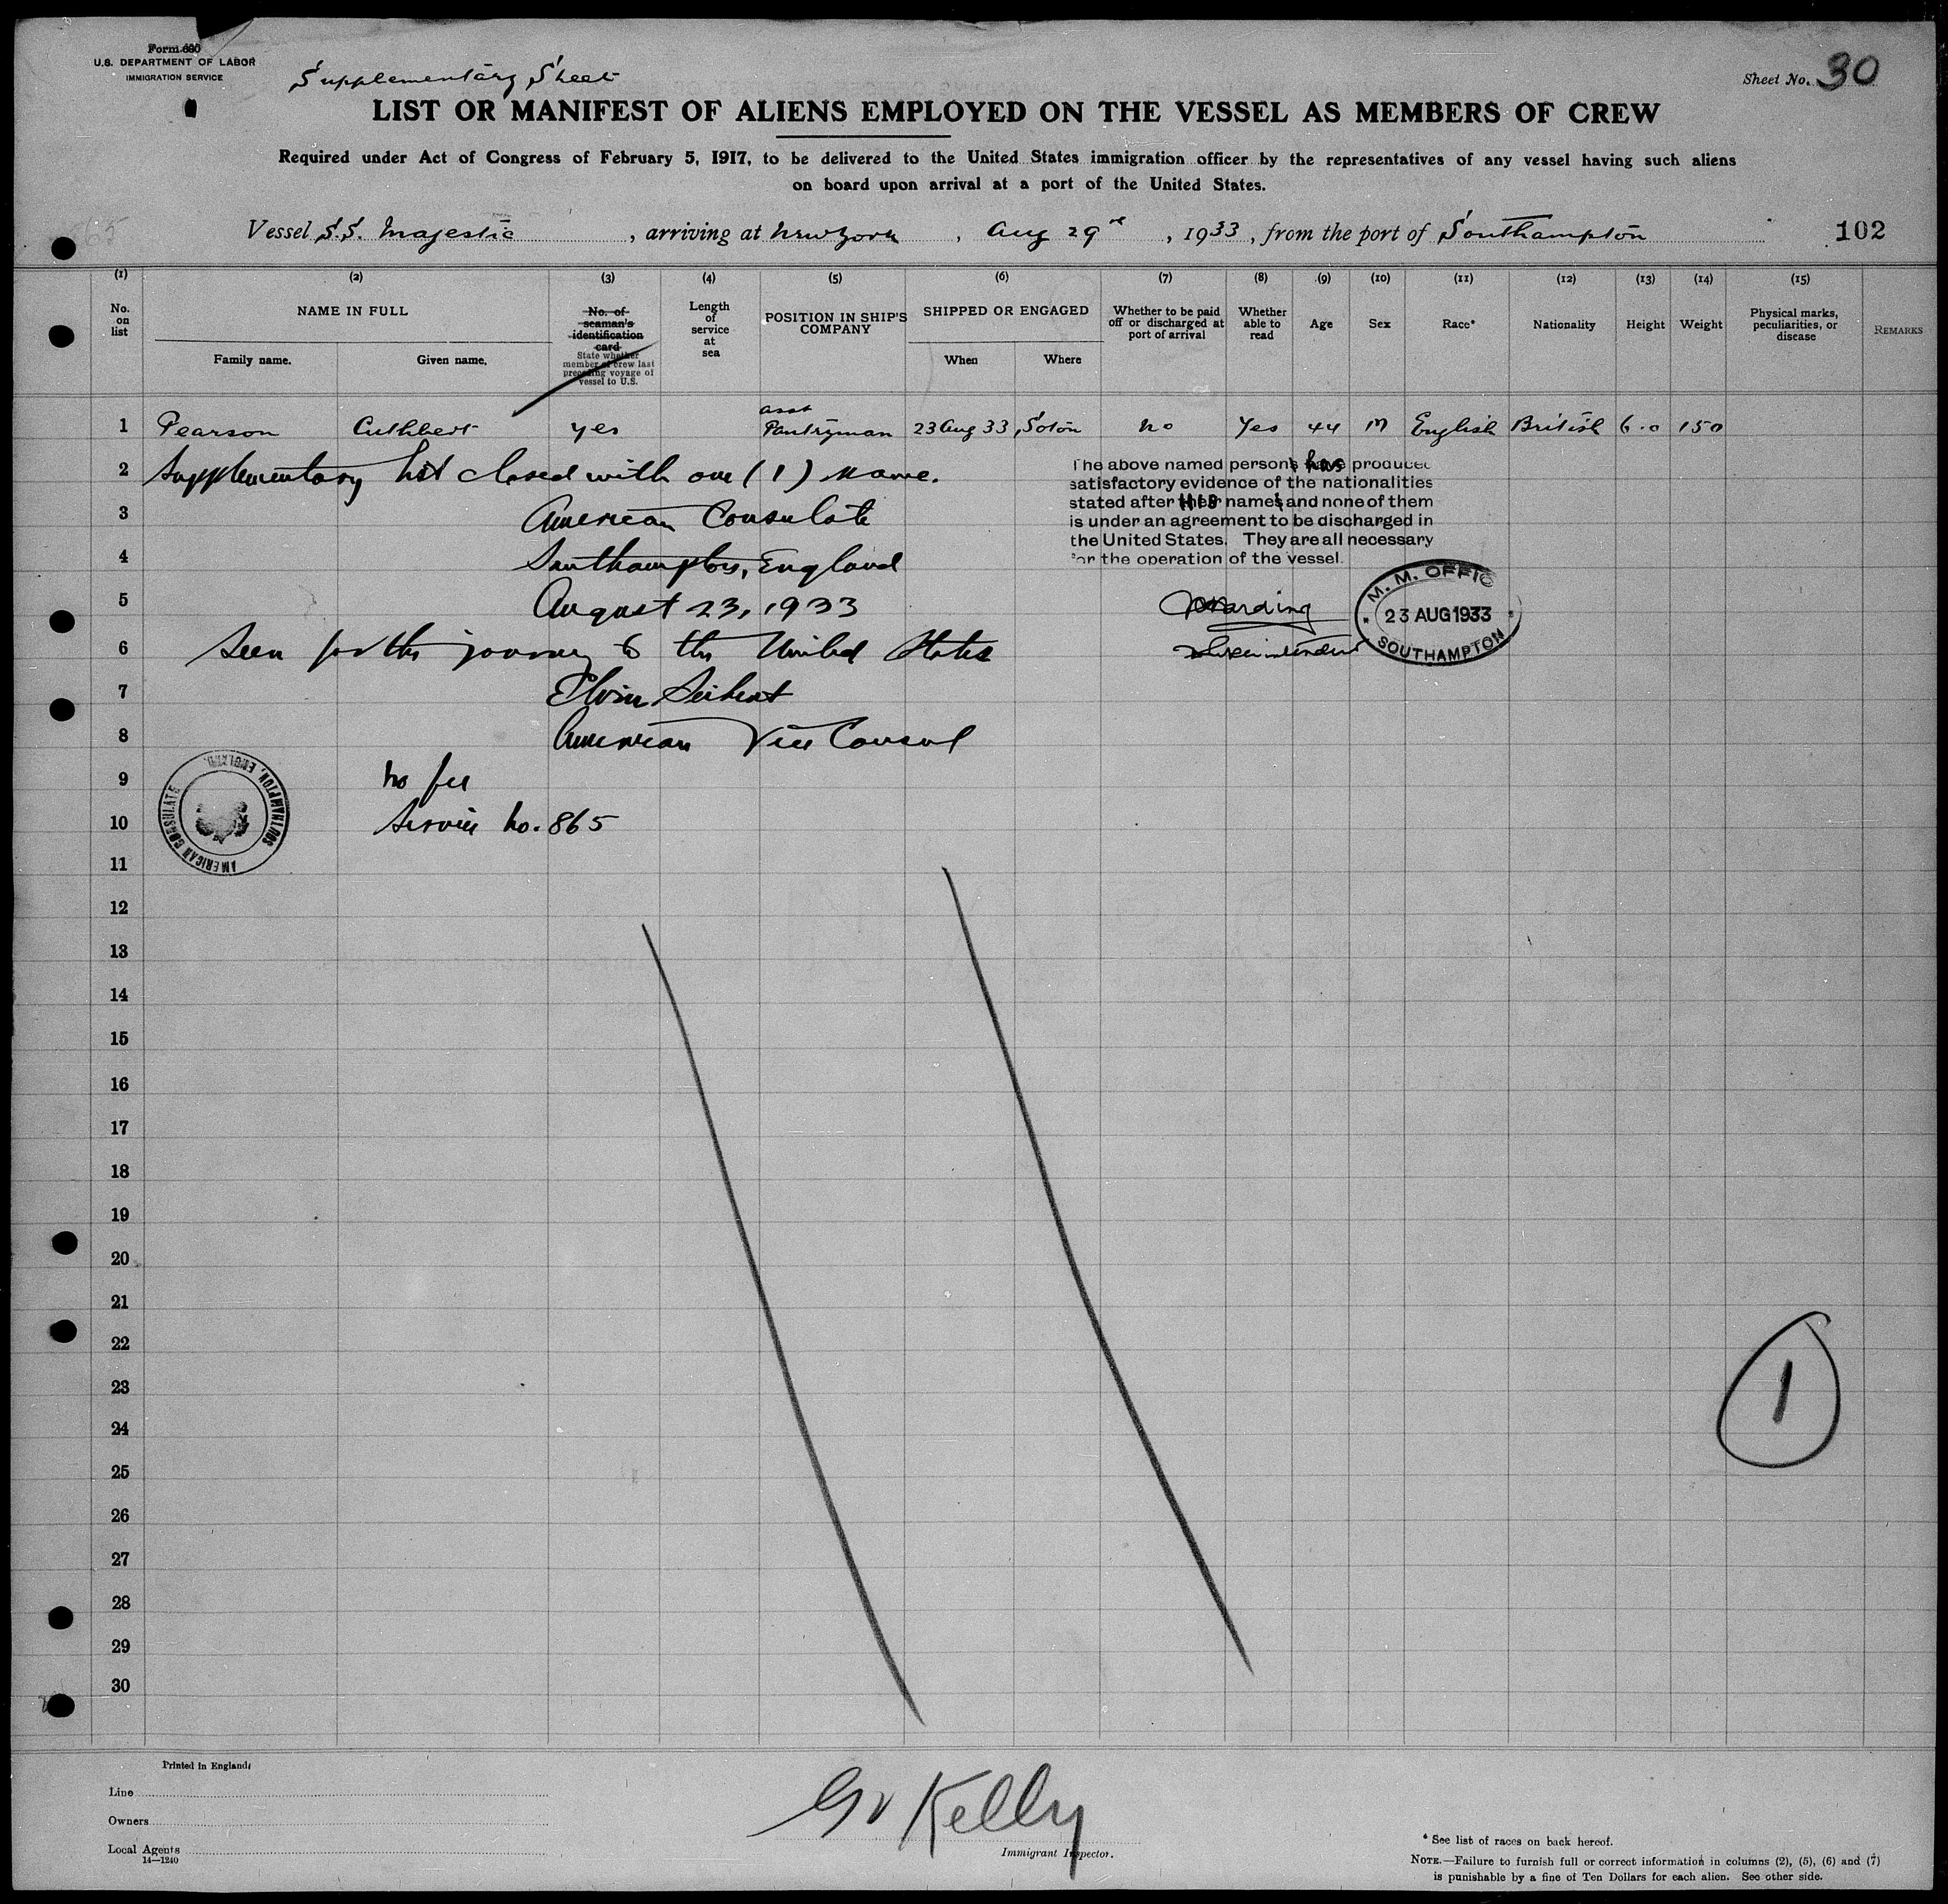 Form 680
U.S. DEPARTMENT OF LABOR
IMMIGRATION SERVICE
Supplementary Sheet
Sheet No. 30
LIST OR MANIFEST OF ALIENS EMPLOYED ON THE VESSEL AS MEMBERS OF CREW
Required under Act of Congress of February 5, 1917, to be delivered to the United States immigration officer by the representatives of any vessel having such aliens
on board upon arrival at a port of the United States.
Vessel S.S. Majestic, arriving at New York, Aug 29, 1933, from the port of Southampton 102
(1) (2) (3) (4) (5) (6) (7) (8) (9) (10) (11) (12) (13) (14) (15)
No. on list
NAME IN FULL
Family name. Given name.
No. of seaman's identification card
State whether member of crew last preceding voyage of vessel to U.S.
Length of service at sea
POSITION IN SHIP'S COMPANY
SHIPPED OR ENGAGED
When Where
Whether to be paid off or discharged at port of arrival
Whether able to read
Age
Sex
Race*
Nationality
Height
Weight
Physical marks, peculiarities, or disease
REMARKS
1 Pearson Cuthbert yes asst Pantryman 23 Aug 33, Soton No Yes 44 M English British 6.0 150
2 Supplementary list closed with one (1) name.
3 American Consulate
4 Southampton, England
5 August 23, 1933
6 Seen for the journey to the United States
7 Elvin Seibert
8 American Vice Consul
9 No fee
10 Service No. 865
The above named persons has produced
satisfactory evidence of the nationalities
stated after their HIS names and none of them
is under an agreement to be discharged in
the United States. They are all necessary
for the operation of the vessel.
Harding
Superintendent
M. M. OFFICE
23 AUG 1933
SOUTHAMPTON
AMERICAN CONSULATE
SOUTHAMPTON, ENGLAND.
11
12
13
14
15
16
17
18
19
20
21
22
23
24
25
26
27
28
29
30
1
Printed in England
Line
Owners
Local Agents
14—1240
Kelly
Immigrant Inspector.
* See list of races on back hereof.
NOTE.—Failure to furnish full or correct information in columns (2), (5), (6) and (7)
is punishable by a fine of Ten Dollars for each alien. See other side.